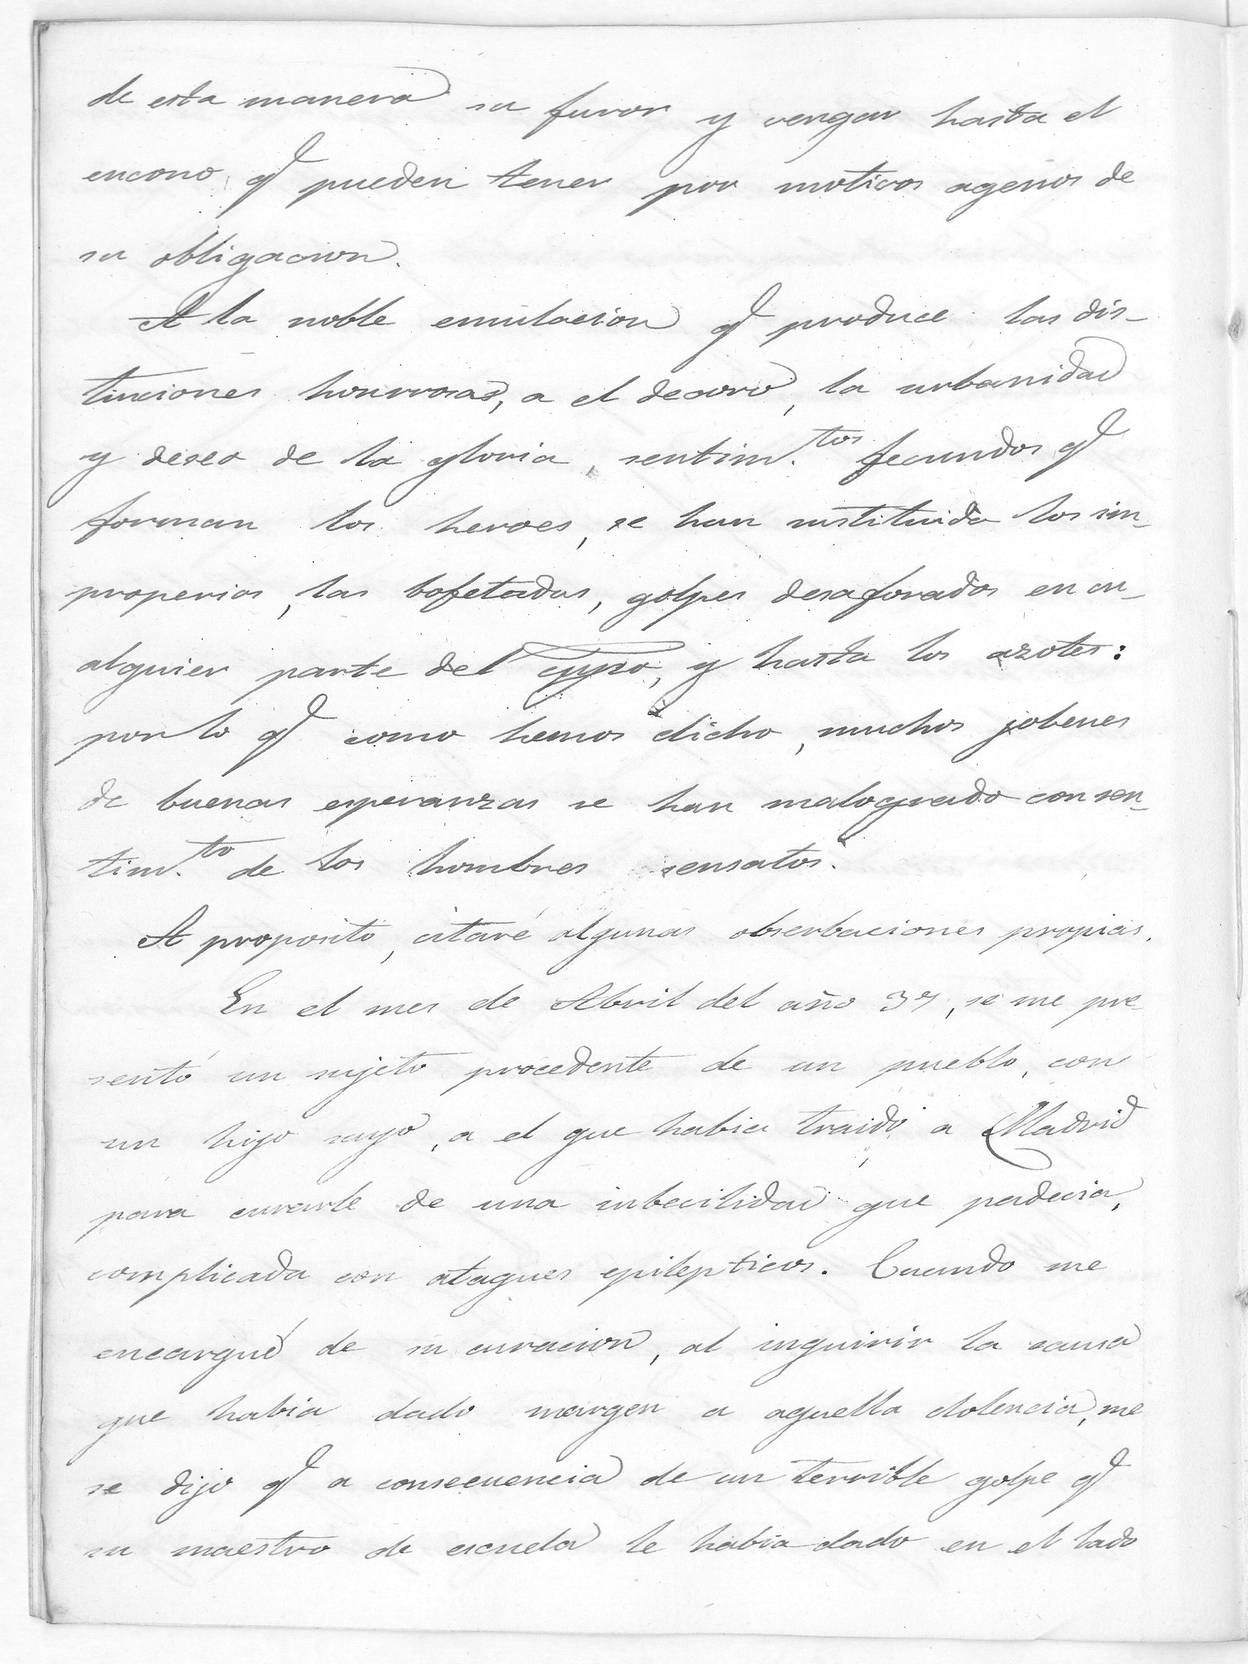 de esta manera su furor y vengar hasta el
encono q.e pueden tener por motivos agenos de
su obligacion.
A la noble emulacion q.e produce las dis-
tinciones honrrosas, a el decoro, la urbanidad
y deseo de la gloria, sentim.tos fecundos q.e
forman los heroes, se han instituida los im-
properios, las bofetadas, golpes desaforados en cu-
alquier parte del cuerpo, y hasta los azotes:
por lo q.e como hemos dicho, muchos jobenes
de buenas esperanzas se han malogrado con sen-
tim.to de los hombres sensatos.
A proposito, citaré algunas obserbaciones propias.
En el mes de Abril del año 37, se me pre-
sentó un sujeto procedente de un pueblo, con
un hijo suyo, a el que habia traido a Madrid
para curarle de una inbecilidad que padecia,
complicada con ataques epilepticos. Cuando me
encargué de su curacion, al inquirir la causa
que habia dado margen a aquella dolencia, me
se dijo q.e a consecuencia de un terrible golpe q.e
su maestro de escuela le habia dado en el lado